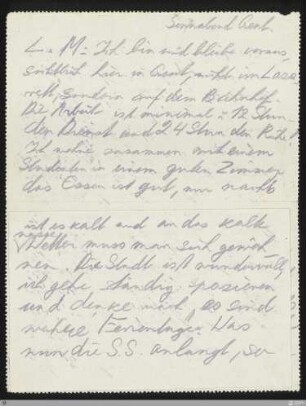 Sonnabend Gent.
L. M. Ich bin und bleibe voraus
sichtlich hier in Gent, nicht im Laza
rett, sondern auf dem Bahnhof.
Die Arbeit ist minimal = 12 Stun
den Dienst und 24 Stunden Ruhe!
Ich wohne zusammen mit einem
Studenten in einem guten Zimmer,
das Essen ist gut, nur nachts
ist es kalt und an das kalte
nasse
Wetter muss man sich gewöh
nen. Die Stadt ist wundervoll,
ich gehe ständig spazieren
und denke nach, es sind
Ferientage. Was
nun die S.S. anlangt, so